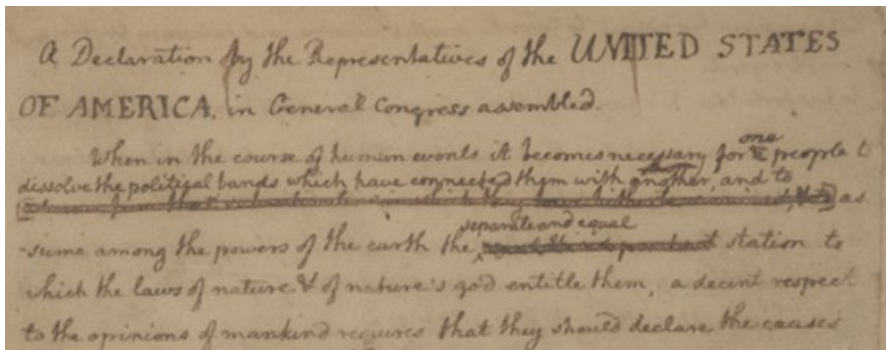 A Declaration by the Representatives of the UNITED STATES
OF AMERICA, in General Congress assembled.
one
When in the course of human events it becomes necessary for people to
dissolve the political bands which have connected them with another, and to
as
separate and equal
-sume among the powers of the earth the station to
which the laws of nature & of nature's god entitle them, a decent respect
to the opinions of mankind requires that they should declare the causes